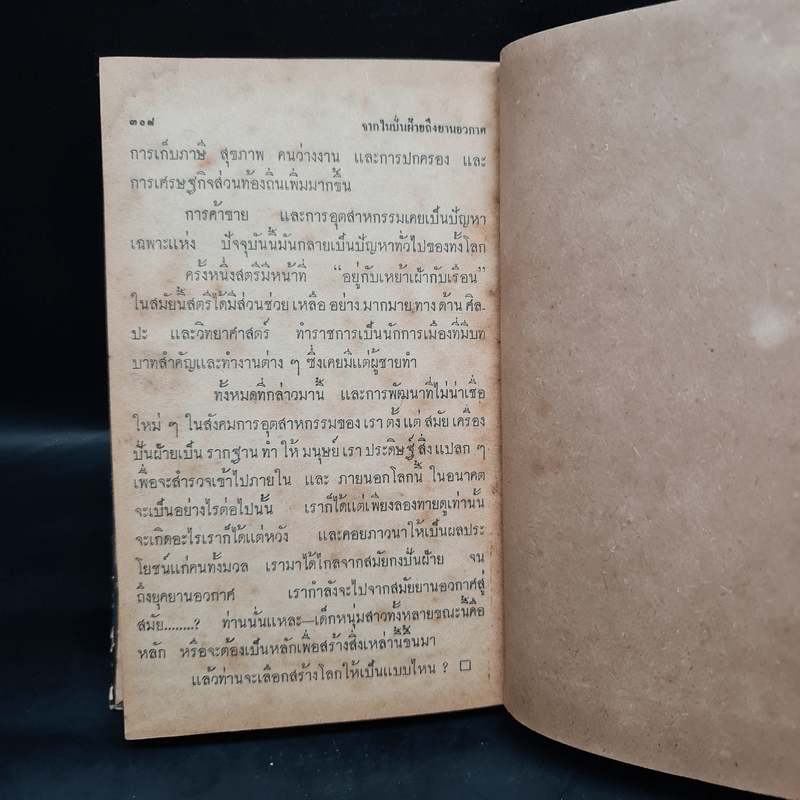 ๓๐๘
จากไนปั่นฝ้ายถึงยานอวกาศ
การเก็บภาษี สุขภาพ คนว่างงาน และการปกครอง และ
การเศรษฐกิจส่วนท้องถิ่นเพิ่มมากขึ้น
การค้าขาย และการอุตสาหกรรมเคยเป็นปัญหา
เฉพาะแห่ง ปัจจุบันนี้มันกลายเป็นปัญหาทั่วไปของทั้งโลก
ครั้งหนึ่งสตรีมีหน้าที่ “อยู่กับเหย้าเฝ้ากับเรือน”
ในสมัยนี้สตรีได้มีส่วนช่วย เหลือ อย่าง มากมาย ทาง ด้าน ศิล-
ปะ และวิทยาศาสตร์ ทำราชการเป็นนักการเมืองที่มีบท
บาทสำคัญและทำงานต่าง ๆ ซึ่งเคยมีแต่ผู้ชายทำ
ทั้งหมดที่กล่าวมานี้ และการพัฒนาที่ไม่น่าเชื่อ
ใหม่ ๆ ในสังคมการอุตสาหกรรมของ เรา ตั้ง แต่ สมัย เครื่อง
ปั่นฝ้ายเป็น รากฐาน ทำ ให้ มนุษย์ เรา ประดิษฐ์ สิ่ง แปลก ๆ
เพื่อจะสำรวจเข้าไปภายใน และ ภายนอกโลกนี้ ในอนาคต
จะเป็นอย่างไรต่อไปนั้น เราก็ได้แต่เพียงลองทายดูเท่านั้น
จะเกิดอะไรเราก็ได้แต่หวัง และคอยภาวนาให้เป็นผลประ
โยชน์แก่คนทั้งมวล เรามาได้ไกลจากสมัยกงปั่นฝ้าย จน
ถึงยุคยานอวกาศ เรากำลังจะไปจากสมัยยานอวกาศสู่
สมัย........? ท่านนั่นแหละ—เด็กหนุ่มสาวทั้งหลายขณะนี้คือ
หลัก หรือจะต้องเป็นหลักเพื่อสร้างสิ่งเหล่านี้ขึ้นมา
แล้วท่านจะเลือกสร้างโลกให้เป็นแบบไหน ? □